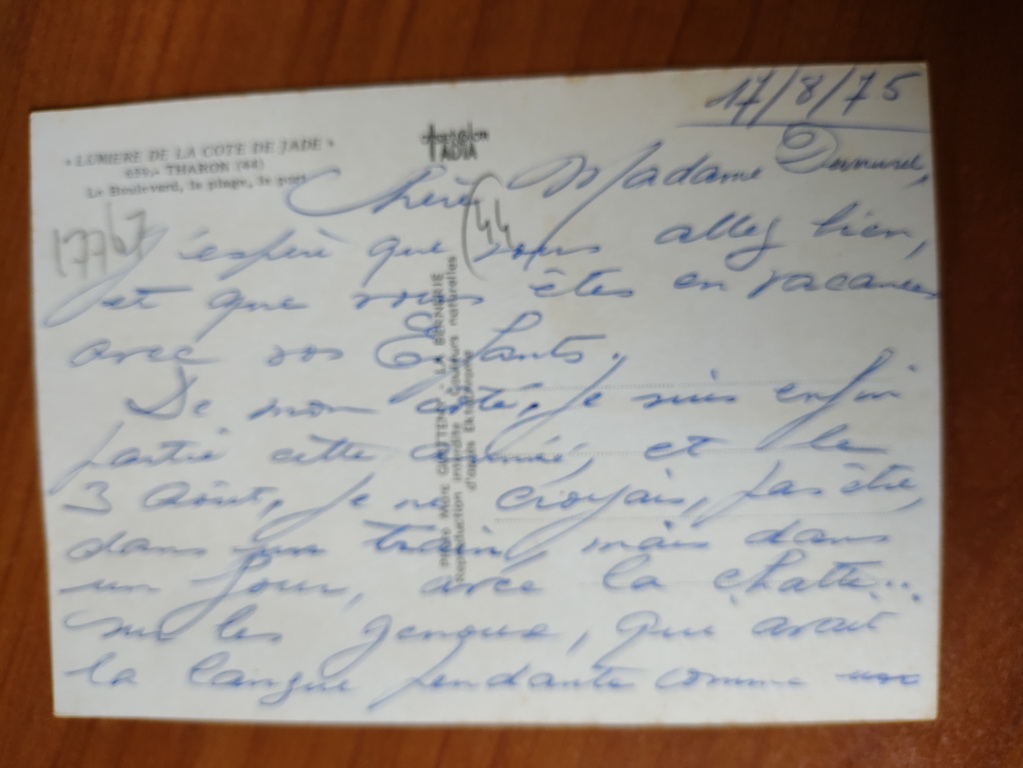 17/8/75
« LUMIERE DE LA COTE DE JADE »
THARON (44)
Le Boulevard, la plage, le port
17767
(44
Chère Madame
J'espère que vous allez bien,
et que vous êtes en vacances
avec vos Enfants.
De mon côté, je suis enfin
partie cette année, et le
3 Août, je ne croyais, pas être,
dans un train, mais dans
un four, avec la chatte...
sur les genoux, qui avait
la langue pendante comme
LA BERNERIE
Reproduction interdite Couleurs naturelles
d'après Ektachrome